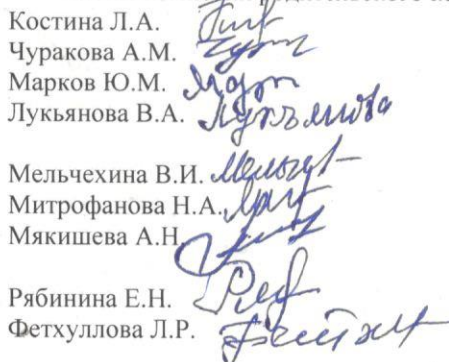 Костина Л.А.
Чуракова А.М.
Марков Ю.М.
Лукьянова В.А. Лукьянова
Мельчехина В.И.
Митрофанова Н.А.
Мякишева А.Н.
Рябинина Е.Н.
Фетхуллова Л.Р.